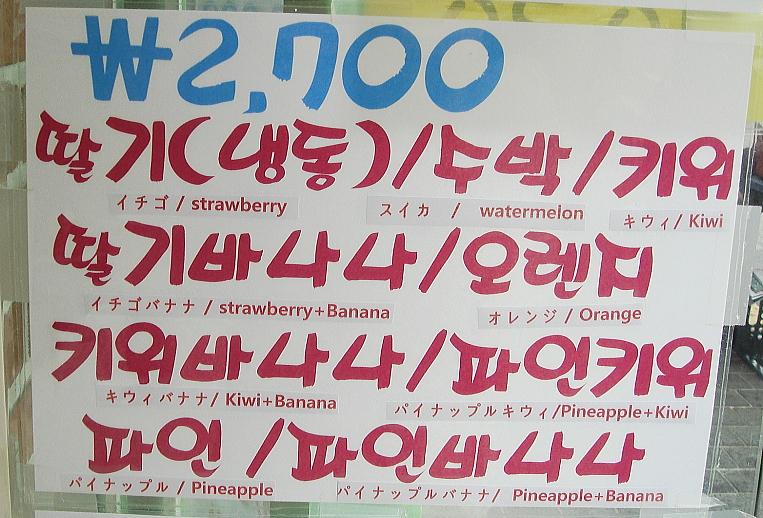 ₩2,700
딸기(냉동)/수박/키위
イチゴ / strawberry スイカ / watermelon キウィ / Kiwi
딸기바나나/오렌지
イチゴバナナ / strawberry+Banana オレンジ / Orange
키위바나나/파인키위
キウィバナナ/ Kiwi+Banana パイナップルキウィ/Pineapple+Kiwi
파인/파인바나나
パイナップル / Pineapple パイナップルバナナ/ Pineapple+Banana